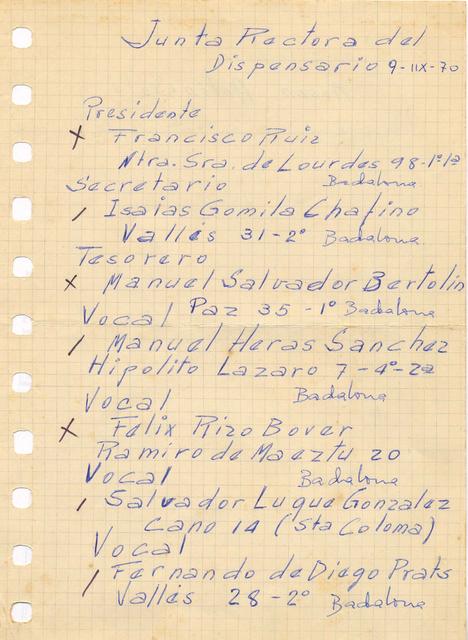 Junta Rectora del
Dispensario 9-IIX-70
Presidente
x Francisco Ruiz
Ntra. Sra. de Lourdes 98-1º1ª
Secretario Badalona
/ Isaias Gomila Chafino
Vallés 31-2º Badalona
Tesorero
x Manuel Salvador Bertolin
Vocal Paz 35-1º Badalona
/ Manuel Heras Sanchez
Hipolito Lazaro 7-4º-2ª
Vocal Badalona
x Felix Rizo Bover
Ramiro de Maeztu 20
Vocal Badalona
/ Salvador Luque Gonzalez
Cano 14 (Sta Coloma)
Vocal
/ Fernando de Diego Prats
Vallés 28-2º Badalona